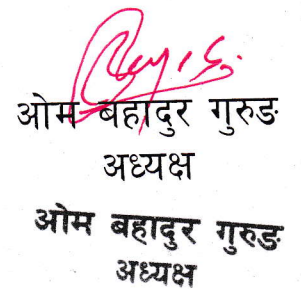 ओम बहादुर गुरुङ
अध्यक्ष
ओम बहादुर गुरुङ
अध्यक्ष